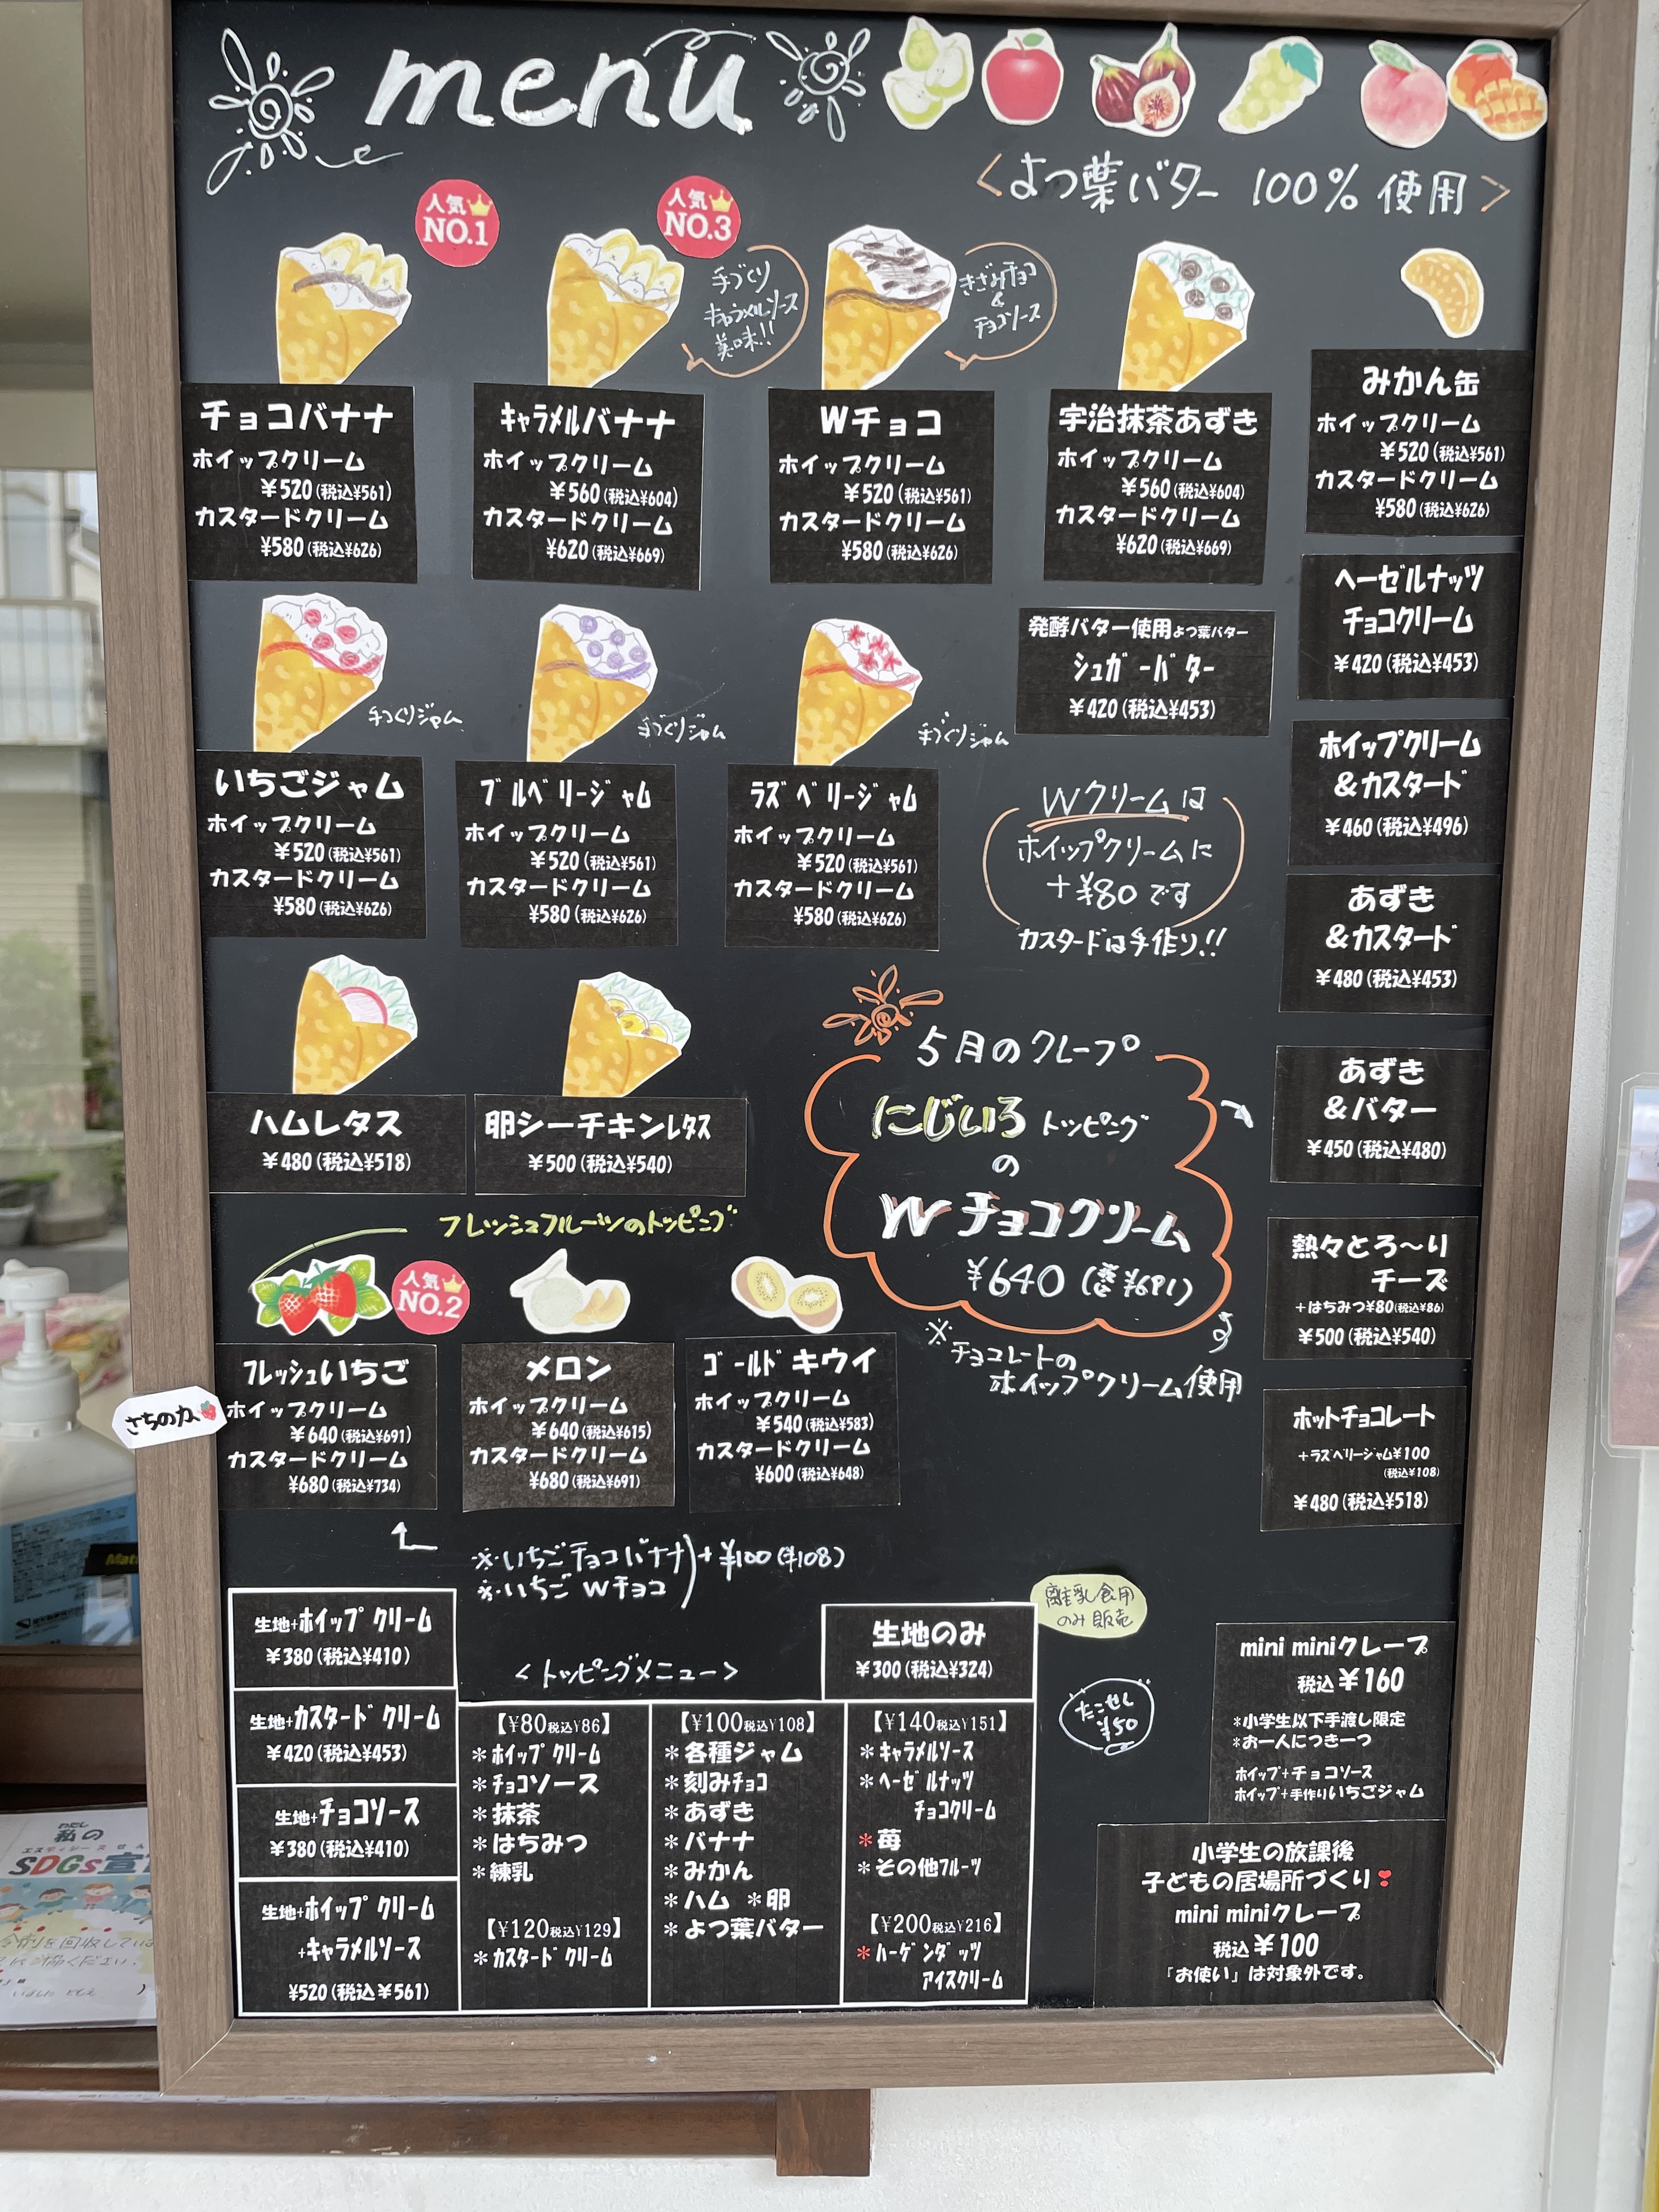 menu
<よつ葉バター 100% 使用>
人気
NO.1
人気
NO.3
手づくり
キャラメルソース
美味!!
きざみチョコ
&
チョコソース
チョコバナナ
ホイップクリーム
¥520(税込¥561)
カスタードクリーム
¥580(税込¥626)
キャラメルバナナ
ホイップクリーム
¥560(税込¥604)
カスタードクリーム
¥620(税込¥669)
Wチョコ
ホイップクリーム
¥520(税込¥561)
カスタードクリーム
¥580(税込¥626)
宇治抹茶あずき
ホイップクリーム
¥560(税込¥604)
カスタードクリーム
¥620(税込¥669)
みかん缶
ホイップクリーム
¥520(税込¥561)
カスタードクリーム
¥580(税込¥626)
ヘーゼルナッツ
チョコクリーム
¥420(税込¥453)
発酵バター使用よつ葉バター
シュガーバター
¥420(税込¥453)
手づくりジャム
手づくりジャム
手づくりジャム
いちごジャム
ホイップクリーム
¥520(税込¥561)
カスタードクリーム
¥580(税込¥626)
ブルベリージャム
ホイップクリーム
¥520(税込¥561)
カスタードクリーム
¥580(税込¥626)
ラズベリージャム
ホイップクリーム
¥520(税込¥561)
カスタードクリーム
¥580(税込¥626)
Wクリームは
ホイップクリームに
+¥80です
カスタードは手作り!!
ホイップクリーム
&カスタード
¥460(税込¥496)
あずき
&カスタード
¥480(税込¥453)
あずき
&バター
¥450(税込¥480)
ハムレタス
¥480(税込¥518)
卵シーチキンレタス
¥500(税込¥540)
5月のクレープ
にじいろ トッピング
の
W チョコクリーム
¥640(税込¥691)
※チョコレートの
ホイップクリーム使用
熱々とろ〜り
チーズ
+はちみつ¥80(税込¥86)
¥500(税込¥540)
ホットチョコレート
+ラズベリージャム¥100
(税込¥108)
¥480(税込¥518)
フレッシュフルーツのトッピング
人気
NO.2
さちのか
フレッシュいちご
ホイップクリーム
¥640(税込¥691)
カスタードクリーム
¥680(税込¥734)
メロン
ホイップクリーム
¥640(税込¥615)
カスタードクリーム
¥680(税込¥691)
ゴールドキウイ
ホイップクリーム
¥540(税込¥583)
カスタードクリーム
¥600(税込¥648)
※いちごチョコバナナ)+¥100(¥108)
※いちご Wチョコ
生地+ホイップクリーム
¥380(税込¥410)
生地+カスタードクリーム
¥420(税込¥453)
生地+チョコソース
¥380(税込¥410)
生地+ホイップクリーム
+キャラメルソース
¥520(税込¥561)
<トッピングメニュー>
生地のみ
¥300(税込¥324)
離乳食用
のみ販売
【¥80税込¥86】
*ホイップクリーム
*チョコソース
*抹茶
*はちみつ
*練乳
【¥120税込¥129】
*カスタードクリーム
【¥100税込¥108】
*各種ジャム
*刻みチョコ
*あずき
*バナナ
*みかん
*ハム *卵
*よつ葉バター
【¥140税込¥151】
*キャラメルソース
*ヘーゼルナッツ
チョコクリーム
*苺
*その他フルーツ
【¥200税込¥216】
*ハーゲンダッツ
アイスクリーム
たこせん
¥50
mini miniクレープ
税込¥160
*小学生以下手渡し限定
*お一人につき一つ
ホイップ+チョコソース
ホイップ+手作りいちごジャム
小学生の放課後
子どもの居場所づくり❣
mini miniクレープ
税込¥100
「お使い」は対象外です。
わたし
私の
SDGs宣